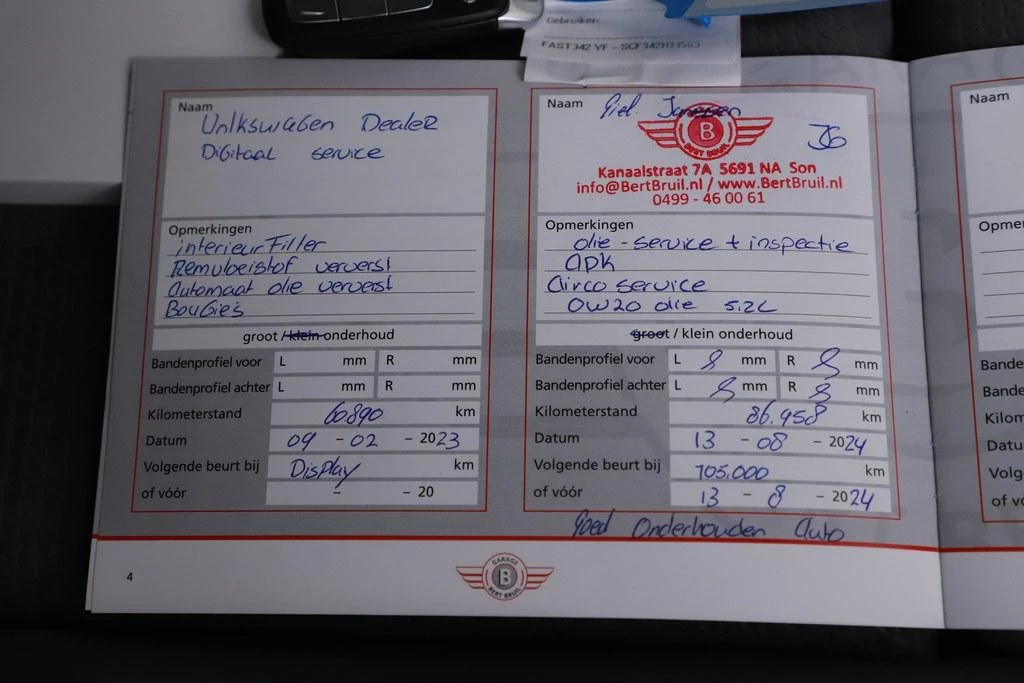 Gebruiken
FAST342 YF - SCF342H14563
Naam
Volkswagen Dealer
Digitaal service
Opmerkingen
interieur Filter
Remvloeistof ververst
Automaat olie ververst
Bougie's
groot / klein onderhoud
Bandenprofiel voor L mm R mm
Bandenprofiel achter L mm R mm
Kilometerstand 60.890 km
Datum 09 - 02 - 2023
Volgende beurt bij Display km
of vóór - - 20
Naam Piet Janssen
B
BERT BRUIL
JG
Kanaalstraat 7A 5691 NA Son
info@BertBruil.nl / www.BertBruil.nl
0499 - 46 00 61
Opmerkingen
olie - service + inspectie
APK
Airco service
0W20 olie 5.2L
groot / klein onderhoud
Bandenprofiel voor L 8 mm R 8 mm
Bandenprofiel achter L 8 mm R 8 mm
Kilometerstand 86.958 km
Datum 13 - 08 - 2024
Volgende beurt bij 105.000 km
of vóór 13 - 8 - 2024
Goed Onderhouden Auto
Naam
Opme
Bande
Bande
Kilom
Datu
Volg
of v
4
GARAGE
B
BERT BRUIL